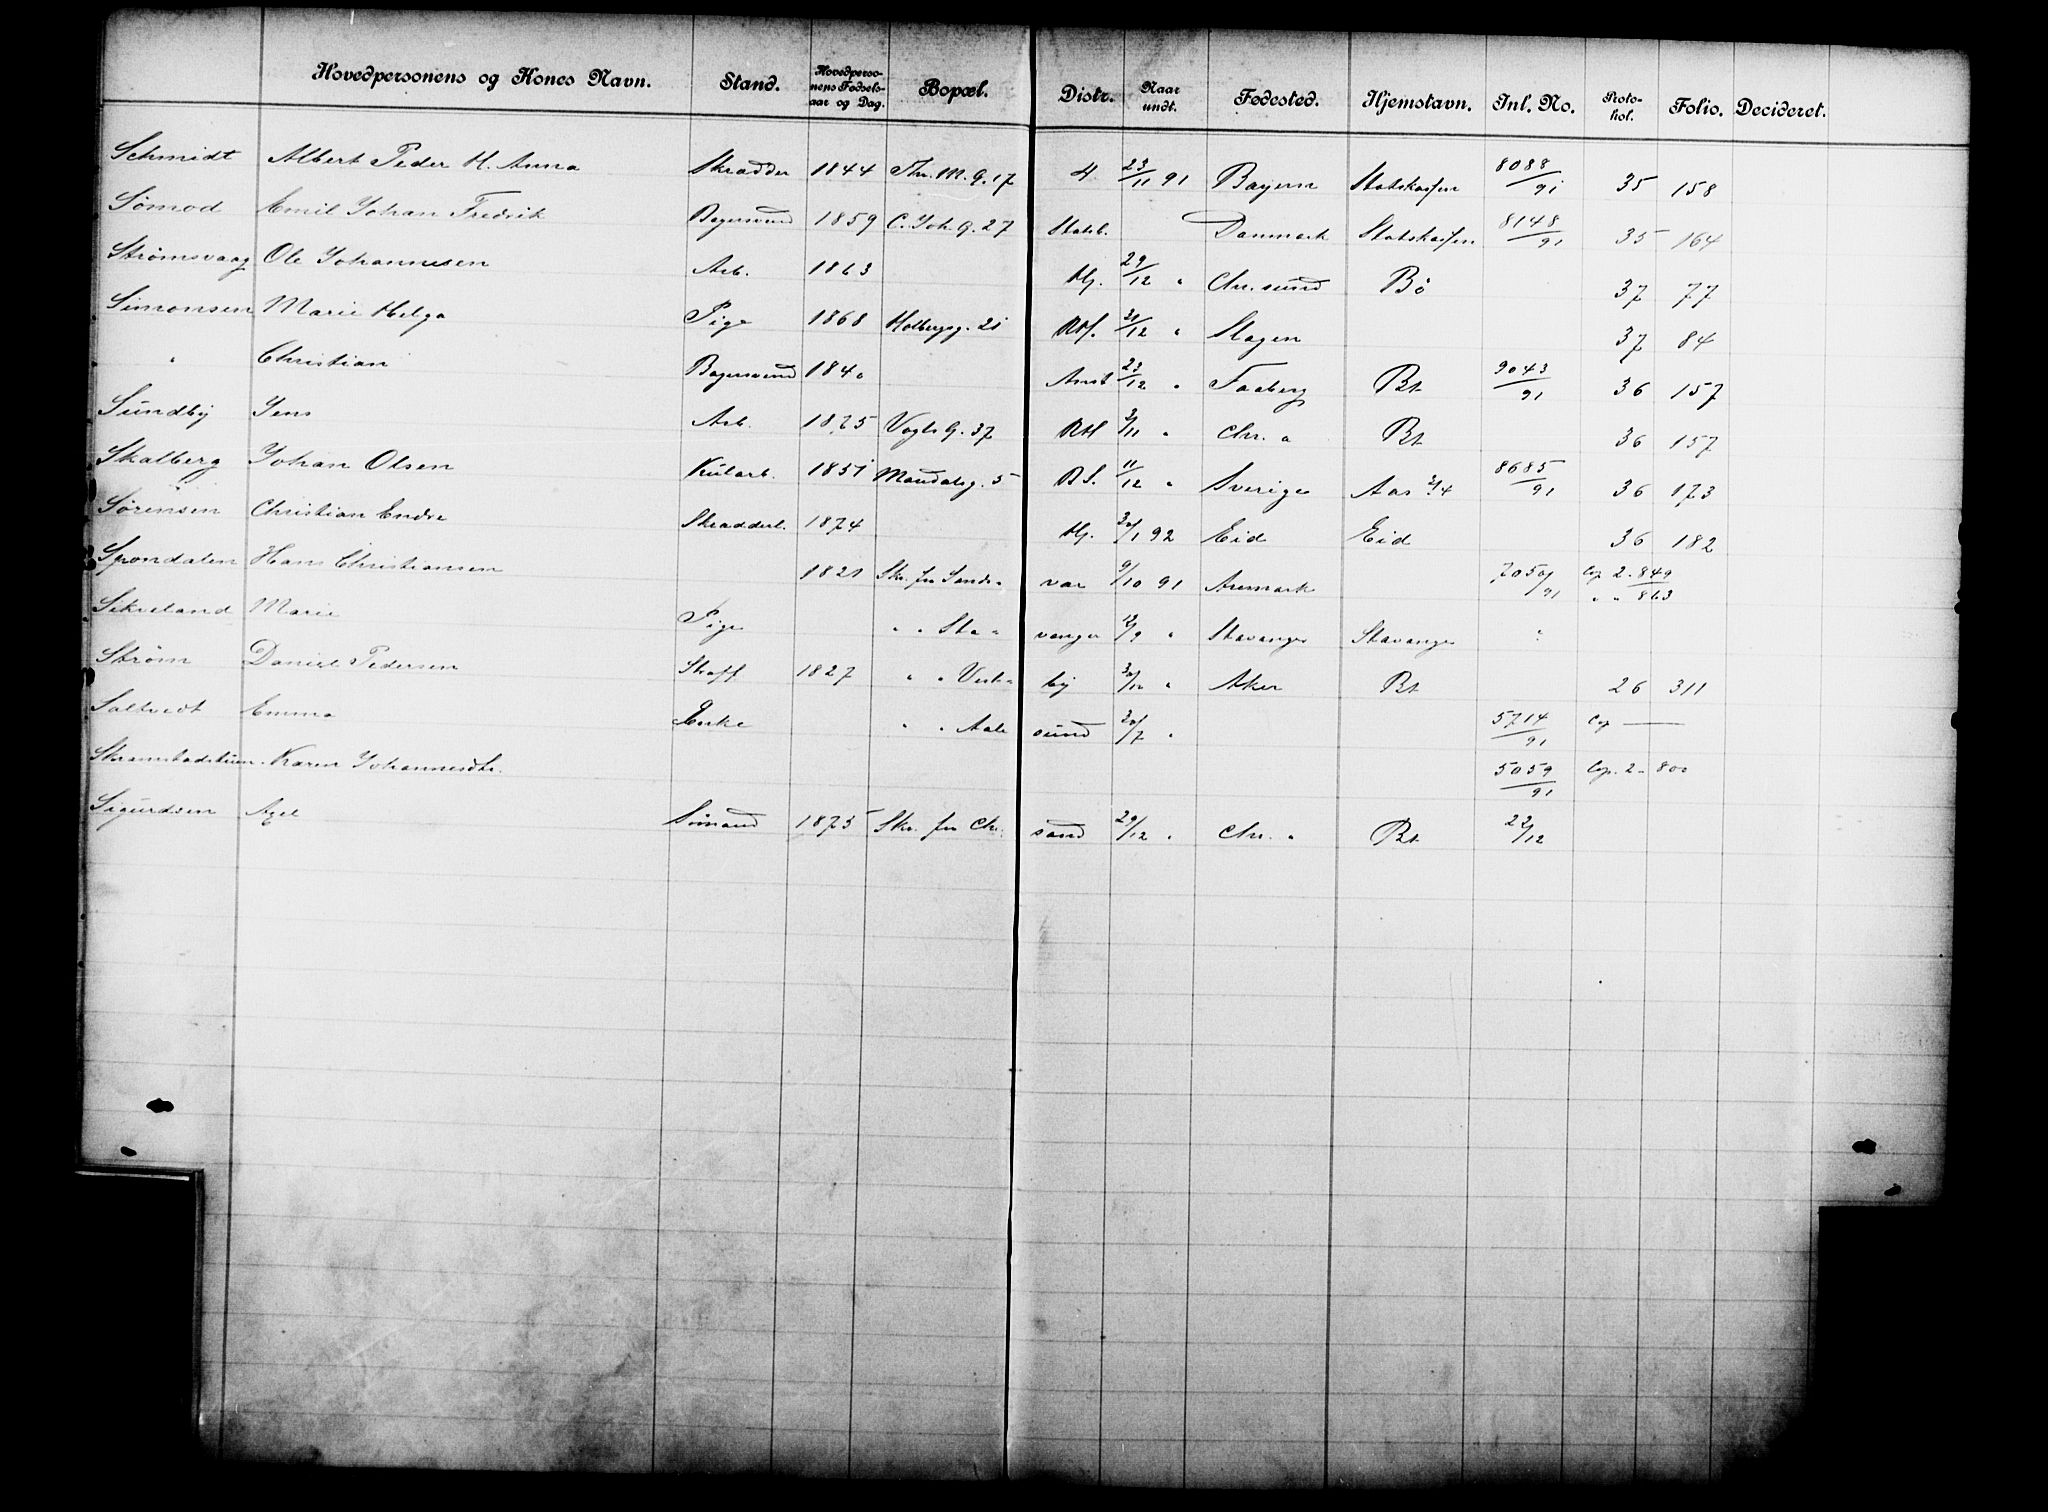 Hovedpersonens og Kones Navn. Stand. Hovedpersonens Fødselsaar og Dag. Bopæl. Distr. Naar undt. Fødested. Hjemstavn. Inl. No. Protokol. Folio. Decideret.
Schmidt Albert Peder H. Anna Skrædder 1844 Thv. M. G. 17 4 23/11 91 Bayern Statskassen 8088/91 35 158
Sømod Emil Johan Fredrik Bagersvend 1859 C. Joh. G. 27 Statsb. Danmark Statskassen 8148/91 35 164
Strømsvaag Ole Johannesen Arb. 1863 Hj. 29/12 " Chr.sund Bö 37 77
Simonsen Marie Helga Pige 1868 Holbergsg. 21 RH. 21/12 " Slagen 37 84
" Christian Bagersvend 1840 Amt 23/12 " Faaberg Bt 9043/91 36 157
Sundby Jens Arb. 1825 Vogts G. 37 RH 3/11 " Chr. a Bt 36 157
Skalberg Johan Olsen Kularb. 1851 Mandalsg. 5 BS. 11/12 " Sverige Aas 2/4 8685/91 36 173
Sörensen Christian Endre Skrædderl. 1874 Hj. 30/1 92 Eid Eid 36 182
Spondalen Hans Christiansen 1821 Skr. fra Sandsvær 9/10 91 Aremark 7050/91 Cop 2 - 849
" " 863
Sikveland Marie Pige " " Stavanger 12/9 " Stavanger Stavanger "
Strøm Daniel Pedersen Skaff. 1827 " " Vestby 30/12 " Aker Bt 26 311
Saltvedt Emma Enke " " Aalesund 30/7 " 5714/91 Cop —
Skramstadstuen Karen Johannesdtr. 5059/91 Cop. 2 - 800
Sigurdsen Axel Sömand 1875 Skr. fra Chr.sand 29/12 " Chr. " Bt 22/12